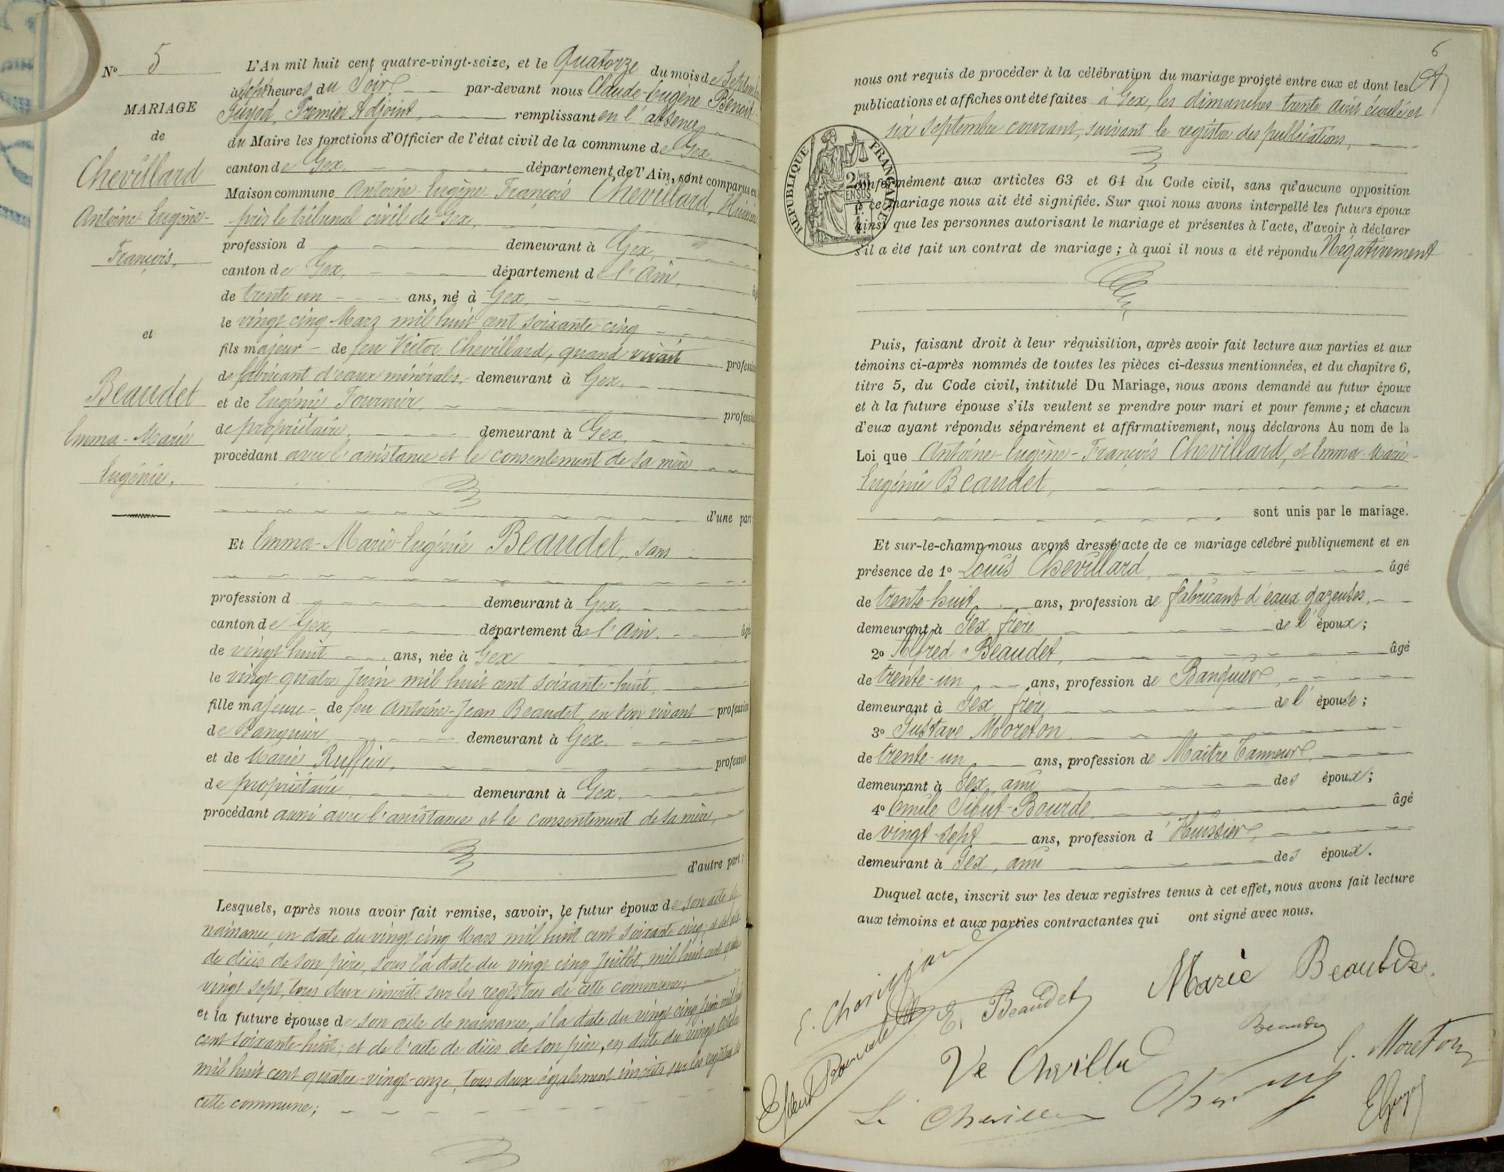 N° 5
MARIAGE
de
Chevillard
Antoine Eugène-
François.
et
Beaudet
Emma-Marie
Eugénie.
L'An mil huit cent quatre-vingt-seize, et le Quatorze du mois de Septembre
à sept heures du Soir par-devant nous Claude-Eugène Benoit
Premier Adjoint, remplissant en l'absence
du Maire les fonctions d'Officier de l'état civil de la commune de Gex
canton de Gex, département de l'Ain, sont comparus en
Maison commune Antoine Eugène François Chevillard, Huissier
près le tribunal civil de Gex,
profession d demeurant à Gex,
canton de Gex, département de l'Ain,
de trente un ans, né à Gex,
le vingt cinq Mars mil huit cent soixante cinq
fils majeur de feu Victor Chevillard, quand vivait profession
de fabricant d'eaux minérales, demeurant à Gex,
et de Eugénie Fournier, profession
de propriétaire, demeurant à Gex,
procédant avec l'assistance et le consentement de sa mère
d'une part
Et Emma-Marie-Eugénie Beaudet, sans
profession d demeurant à Gex,
canton de Gex, département de l'Ain,
de vingt huit ans, née à Gex
le vingt quatre Juin mil huit cent soixante-huit,
fille majeure de feu Antoine-Jean Beaudet, en son vivant profession
de Banquier demeurant à Gex.
et de Marie Ruffier, profession
de propriétaire demeurant à Gex.
procédant aussi avec l'assistance et le consentement de sa mère,
d'autre part;
Lesquels, après nous avoir fait remise, savoir, le futur époux de son acte de
naissance, en date du vingt cinq Mars mil huit cent soixante cinq, et de l'acte
de décès de son père, sous la date du vingt cinq Juillet, mil huit cent quatre
vingt sept, tous deux inscrits sur les registres de cette commune;
et la future épouse de son acte de naissance, à la date du vingt cinq Juin mil huit
cent soixante-huit; et de l'acte de décès de son père, en date du vingt Octobre
mil huit cent quatre-vingt-onze, tous deux également inscrits sur les registres de
cette commune;
6
nous ont requis de procéder à la célébration du mariage projeté entre eux et dont les
publications et affiches ont été faites à Gex, les dimanches trente août écoulé et
six Septembre courant, suivant le registre des publications,
RÉPUBLIQUE FRANÇAISE
Conformément aux articles 63 et 64 du Code civil, sans qu'aucune opposition
à ce mariage nous ait été signifiée. Sur quoi nous avons interpellé les futurs époux
ainsi que les personnes autorisant le mariage et présentes à l'acte, d'avoir à déclarer
s'il a été fait un contrat de mariage; à quoi il nous a été répondu Négativement
Puis, faisant droit à leur réquisition, après avoir fait lecture aux parties et aux
témoins ci-après nommés de toutes les pièces ci-dessus mentionnées, et du chapitre 6,
titre 5, du Code civil, intitulé Du Mariage, nous avons demandé au futur époux
et à la future épouse s'ils veulent se prendre pour mari et pour femme; et chacun
d'eux ayant répondu séparément et affirmativement, nous déclarons Au nom de la
Loi que Antoine-Eugène-François Chevillard, et Emma-Marie-
Eugénie Beaudet,
sont unis par le mariage.
Et sur-le-champ nous avons dressé acte de ce mariage célébré publiquement et en
présence de 1° Louis Chevillard, âgé
de trente-huit ans, profession de Fabricant d'eaux gazeuses,
demeurant à Gex, frère de l'époux;
2° Alfred Beaudet, âgé
de trente-un ans, profession de Banquier,
demeurant à Gex, frère de l'épouse;
3° Gustave Moreton
de trente-un ans, profession de Maître Tanneur,
demeurant à Gex, ami des époux;
4° Emile Bourde âgé
de vingt-sept ans, profession d'Huissier,
demeurant à Gex, ami des époux.
Duquel acte, inscrit sur les deux registres tenus à cet effet, nous avons fait lecture
aux témoins et aux parties contractantes qui ont signé avec nous.
E. Chevillard
E. Beaudet
Marie Beaudet
Beaudet
Ve Chevillard
G. Moreton
L. Chevillard